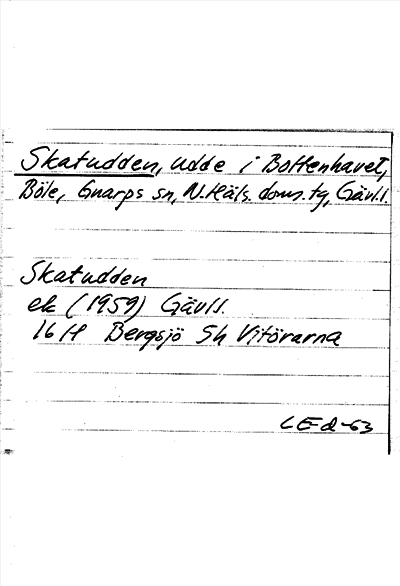 Skatudden, udde i Bottenhavet,
Böle, Gnarps sn, N.Häls. doms.tg, Gävl.l.
Skatudden
ek (1959) Gävll.
16H Bergsjö 5h Vitörarna